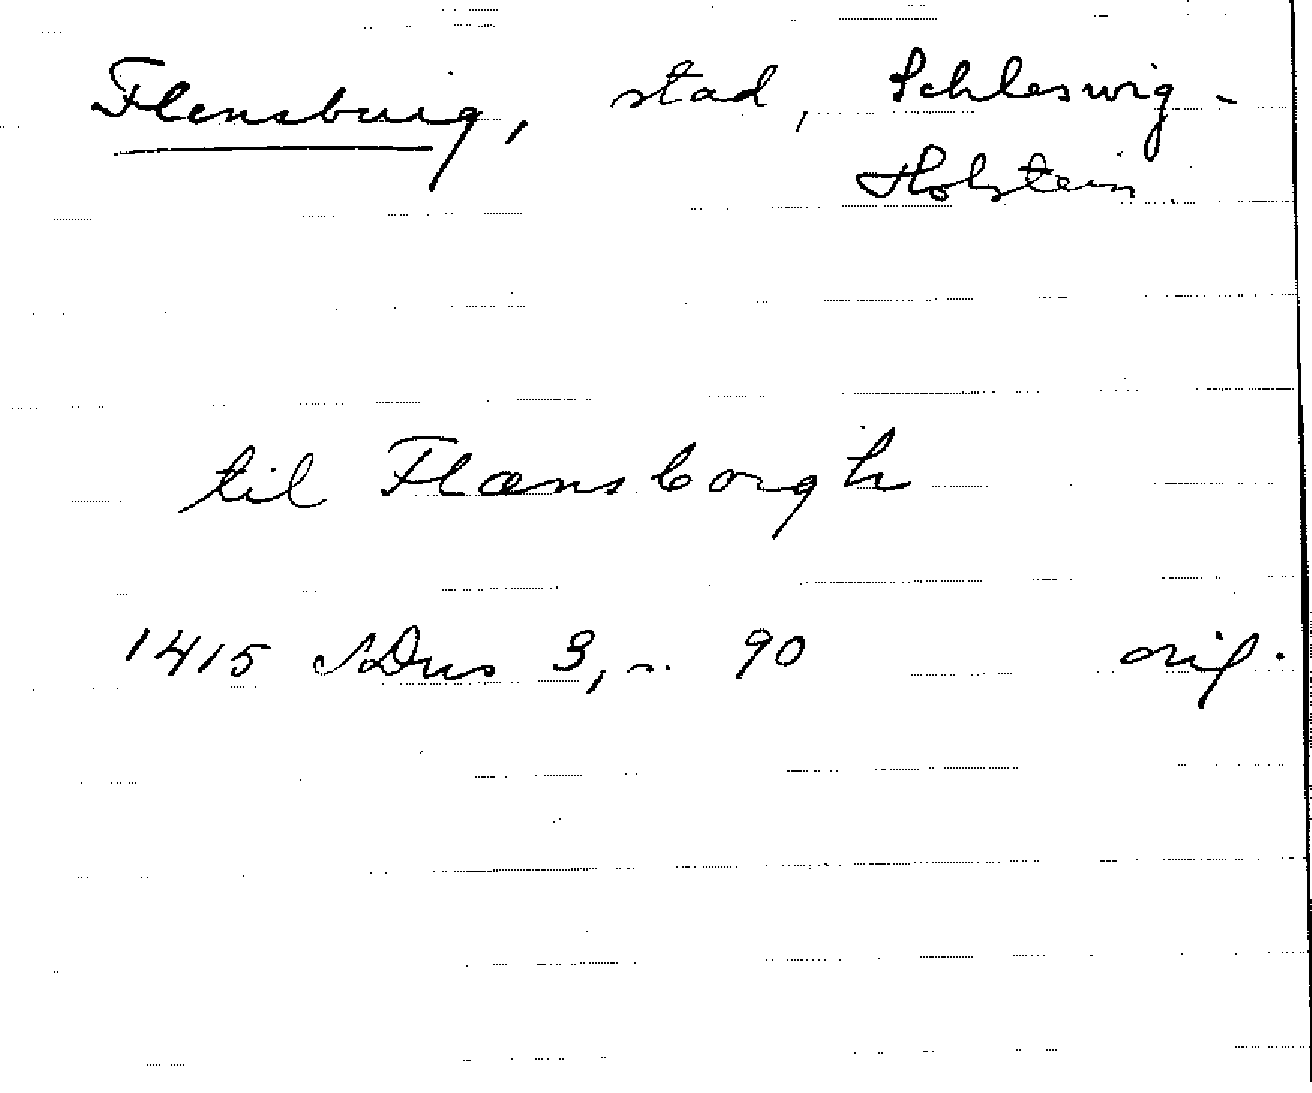 Flensburg, stad, Schleswig-
Holstein.
til Flænsborgh
1415 SDns 3, n. 90 orig.